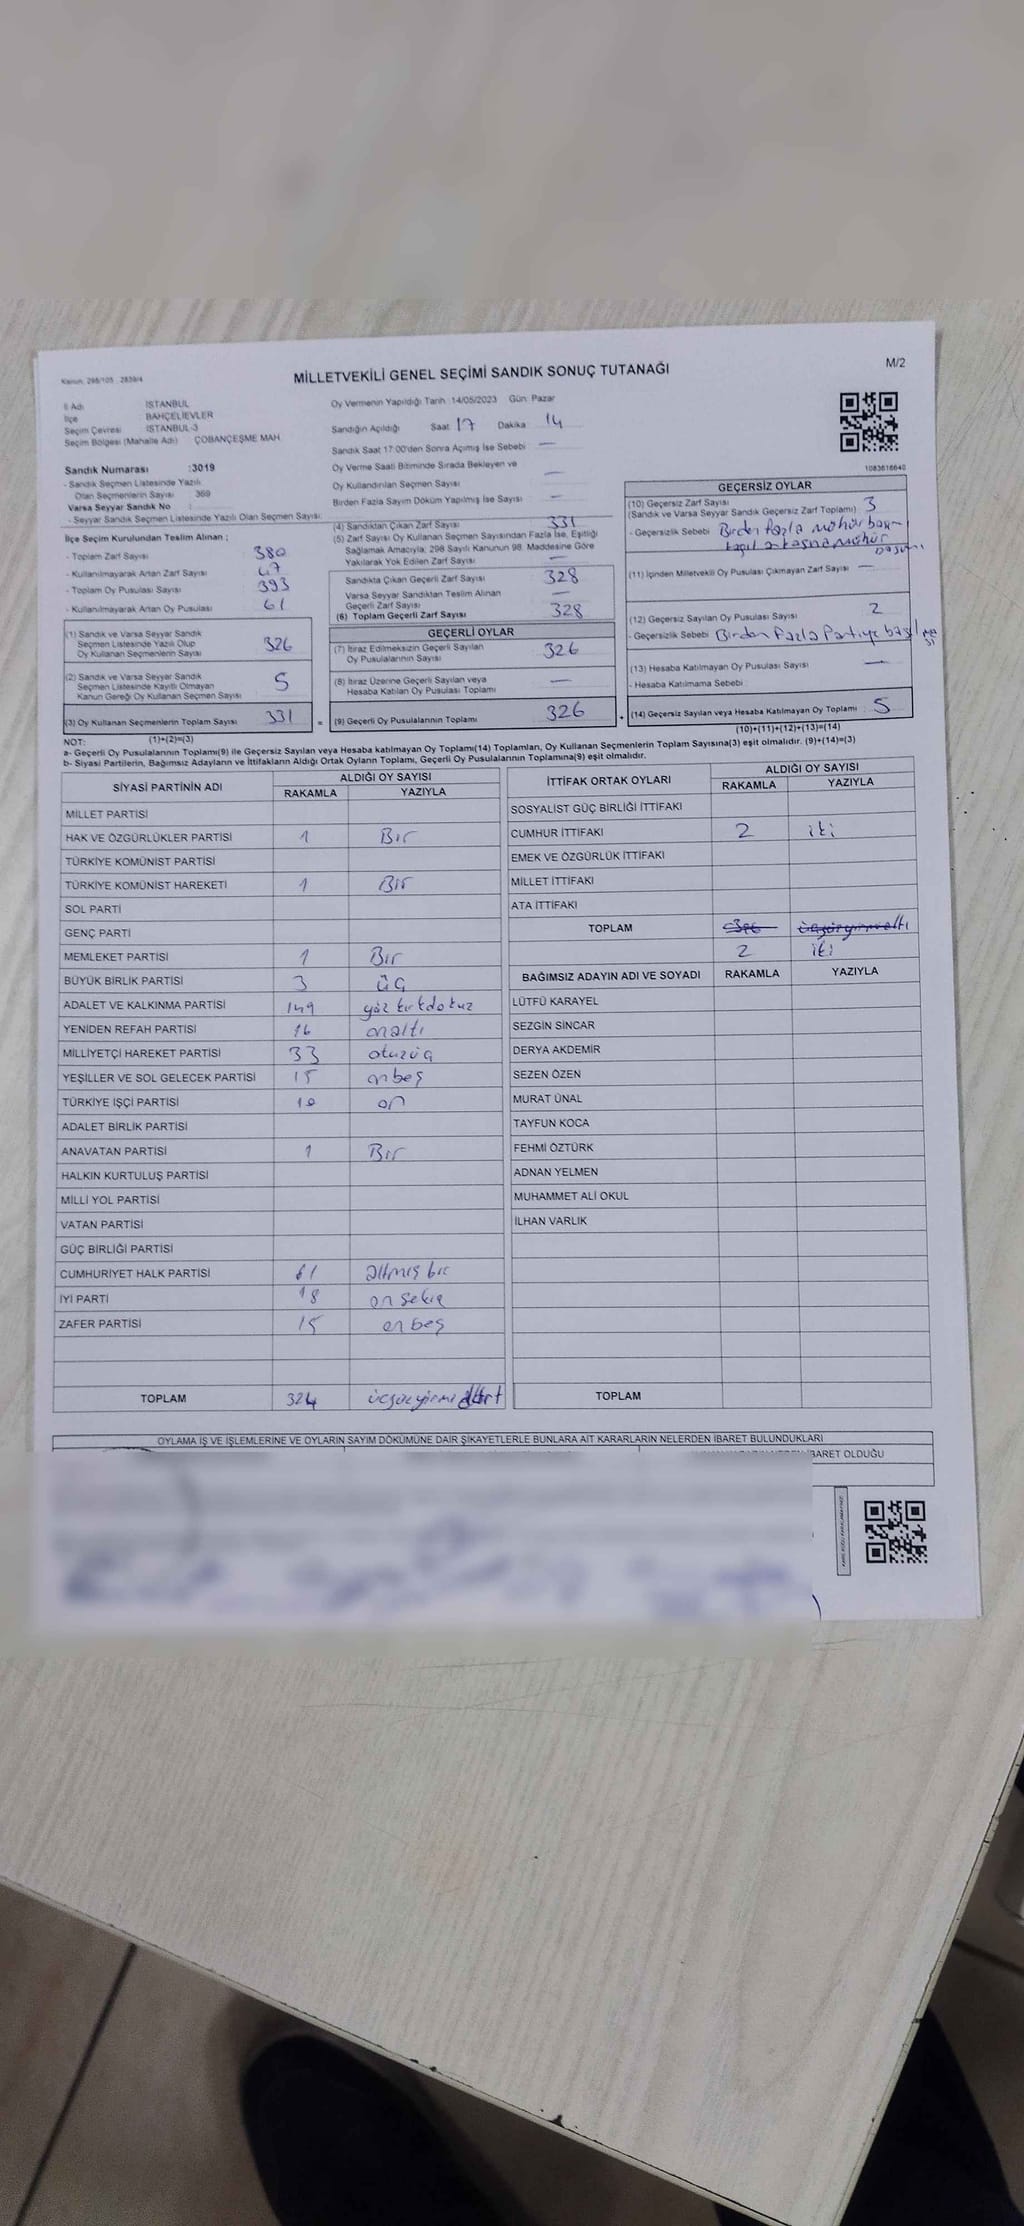 Kanun: 298/105 - 2839/4
MİLLETVEKİLİ GENEL SEÇİMİ SANDIK SONUÇ TUTANAĞI
M/2
İl Adı İSTANBUL
İlçe BAHÇELİEVLER
Seçim Çevresi İSTANBUL-3
Seçim Bölgesi (Mahalle Adı) ÇOBANÇEŞME MAH
Sandık Numarası :3019
- Sandık Seçmen Listesinde Yazılı
Olan Seçmenlerin Sayısı 369
Varsa Seyyar Sandık No :
- Seyyar Sandık Seçmen Listesinde Yazılı Olan Seçmen Sayısı:
İlçe Seçim Kurulundan Teslim Alınan ;
- Toplam Zarf Sayısı 380
- Kullanılmayarak Artan Zarf Sayısı 47
- Toplam Oy Pusulası Sayısı 393
- Kullanılmayarak Artan Oy Pusulası 61
(1) Sandık ve Varsa Seyyar Sandık
Seçmen Listesinde Yazılı Olup
Oy Kullanan Seçmenlerin Sayısı 326
(2) Sandık ve Varsa Seyyar Sandık
Seçmen Listesinde Kayıtlı Olmayan
Kanun Gereği Oy Kullanan Seçmen Sayısı 5
(3) Oy Kullanan Seçmenlerin Toplam Sayısı 331 =
(1)+(2)=(3)
Oy Vermenin Yapıldığı Tarih :14/05/2023 Gün: Pazar
Sandığın Açıldığı Saat 17 Dakika 14
Sandık Saat 17:00'den Sonra Açımış İse Sebebi —
Oy Verme Saati Bitiminde Sırada Bekleyen ve
Oy Kullandırılan Seçmen Sayısı —
Birden Fazla Sayım Döküm Yapılmış İse Sayısı —
(4) Sandıktan Çıkan Zarf Sayısı 331
(5) Zarf Sayısı Oy Kullanan Seçmen Sayısından Fazla İse, Eşitliği
Sağlamak Amacıyla; 298 Sayılı Kanunun 98. Maddesine Göre
Yakılarak Yok Edilen Zarf Sayısı —
Sandıkta Çıkan Geçerli Zarf Sayısı 328
Varsa Seyyar Sandıktan Teslim Alınan
Geçerli Zarf Sayısı —
(6) Toplam Geçerli Zarf Sayısı 328
GEÇERLİ OYLAR
(7) İtiraz Edilmeksizin Geçerli Sayılan
Oy Pusulalarının Sayısı 326
(8) İtiraz Üzerine Geçerli Sayılan veya
Hesaba Katılan Oy Pusulası Toplamı —
(9) Geçerli Oy Pusulalarının Toplamı 326 +
1083616640
GEÇERSİZ OYLAR
(10) Geçersiz Zarf Sayısı 3
(Sandık ve Varsa Seyyar Sandık Geçersiz Zarf Toplamı)
- Geçersizlik Sebebi Birden fazla mühür
mühür
(11) İçinden Milletvekili Oy Pusulası Çıkmayan Zarf Sayısı —
(12) Geçersiz Sayılan Oy Pusulası Sayısı 2
- Geçersizlik Sebebi Birden Fazla Partiye
(13) Hesaba Katılmayan Oy Pusulası Sayısı —
- Hesaba Katılmama Sebebi
(14) Geçersiz Sayılan veya Hesaba Katılmayan Oy Toplamı : 5
(10)+(11)+(12)+(13)=(14)
NOT:
a- Geçerli Oy Pusulalarının Toplamı(9) ile Geçersiz Sayılan veya Hesaba katılmayan Oy Toplamı(14) Toplamları, Oy Kullanan Seçmenlerin Toplam Sayısına(3) eşit olmalıdır. (9)+(14)=(3)
b- Siyasi Partilerin, Bağımsız Adayların ve İttifakların Aldığı Ortak Oyların Toplamı, Geçerli Oy Pusulalarının Toplamına(9) eşit olmalıdır.
SİYASİ PARTİNİN ADI ALDIĞI OY SAYISI
RAKAMLA YAZIYLA
MİLLET PARTİSİ
HAK VE ÖZGÜRLÜKLER PARTİSİ 1 Bir
TÜRKİYE KOMÜNİST PARTİSİ
TÜRKİYE KOMÜNİST HAREKETİ 1 Bir
SOL PARTİ
GENÇ PARTİ
MEMLEKET PARTİSİ 1 Bir
BÜYÜK BİRLİK PARTİSİ 3 üç
ADALET VE KALKINMA PARTİSİ 149 yüz kırkdokuz
YENİDEN REFAH PARTİSİ 16 onaltı
MİLLİYETÇİ HAREKET PARTİSİ 33 otuzüç
YEŞİLLER VE SOL GELECEK PARTİSİ 15 onbeş
TÜRKİYE İŞÇİ PARTİSİ 10 on
ADALET BİRLİK PARTİSİ
ANAVATAN PARTİSİ 1 Bir
HALKIN KURTULUŞ PARTİSİ
MİLLİ YOL PARTİSİ
VATAN PARTİSİ
GÜÇ BİRLİĞİ PARTİSİ
CUMHURİYET HALK PARTİSİ 61 altmış bir
İYİ PARTİ 18 on sekiz
ZAFER PARTİSİ 15 onbeş
TOPLAM 324 üçyüzyirmi dört
İTTİFAK ORTAK OYLARI ALDIĞI OY SAYISI
RAKAMLA YAZIYLA
SOSYALİST GÜÇ BİRLİĞİ İTTİFAKI
CUMHUR İTTİFAKI 2 iki
EMEK VE ÖZGÜRLÜK İTTİFAKI
MİLLET İTTİFAKI
ATA İTTİFAKI
TOPLAM 326 üçyüzyirmialtı
2 iki
BAĞIMSIZ ADAYIN ADI VE SOYADI RAKAMLA YAZIYLA
LÜTFÜ KARAYEL
SEZGİN SİNCAR
DERYA AKDEMİR
SEZEN ÖZEN
MURAT ÜNAL
TAYFUN KOCA
FEHMİ ÖZTÜRK
ADNAN YELMEN
MUHAMMET ALİ OKUL
İLHAN VARLIK
TOPLAM
OYLAMA İŞ VE İŞLEMLERİNE VE OYLARIN SAYIM DÖKÜMÜNE DAİR ŞİKAYETLERLE BUNLARA AİT KARARLARIN NELERDEN İBARET BULUNDUKLARI
İBARET OLDUĞU